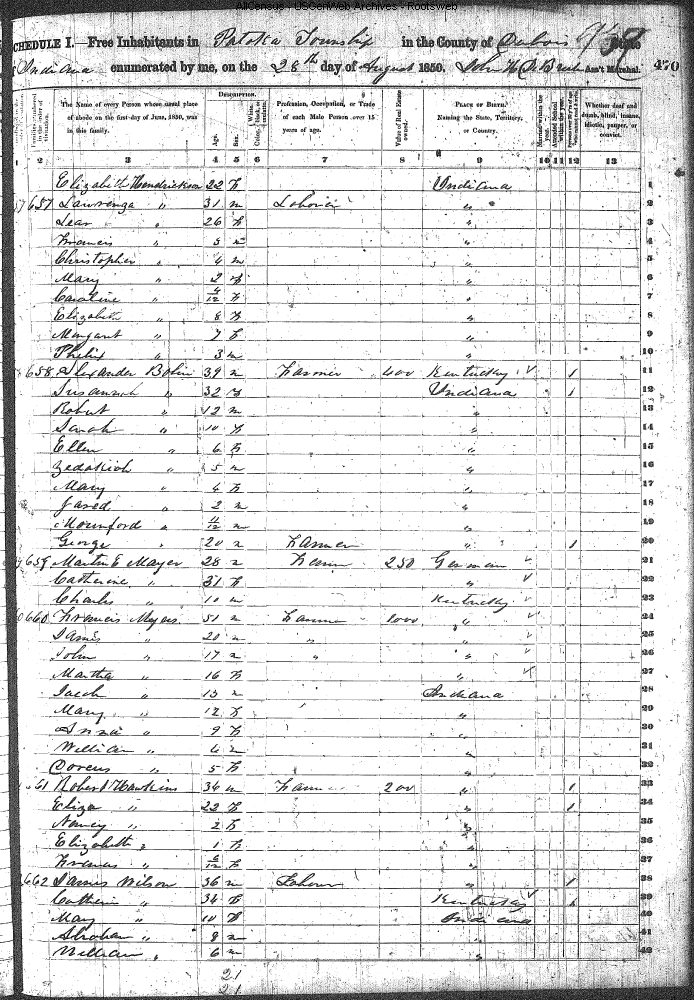 AllCensus - USGenWeb Archives - Rootsweb
SCHEDULE I.—Free Inhabitants in Patoka Township in the County of Dubois State
of Indiana enumerated by me, on the 28th day of August 1850. Ass't Marshal. 470
The Name of every Person whose usual place of abode on the first day of June, 1850, was in this family.
DESCRIPTION.
Age. Sex. White, black, or mulatto.
Profession, Occupation, or Trade of each Male Person over 15 years of age.
Value of Real Estate owned.
PLACE OF BIRTH. Naming the State, Territory, or Country.
Married within the year. Attended School within the year.
Whether deaf and dumb, blind, insane, idiotic, pauper, or convict.
2 3 4 5 6 7 8 9 10 11 12 13
Elizabeth Hendrickson 22 F Indiana 1
657 31 m " 2
" 26 F " 3
Francis " 5 " 4
Christopher " 4 m " 5
Mary " 2 F " 6
Caroline " /12 F " 7
Elizabeth " 8 F " 8
Margaret " 7 F " 9
" 3 m " 10
658 Alexander Bolin 39 m Farmer 400 Kentucky 1 11
Susannah " 32 F Indiana 1 12
Robert " 12 m " 13
Sarah " 10 F " 14
Ellen " 6 F " 15
" 5 m " 16
Mary " 4 F " 17
Jared " 2 m " 18
" 11/12 m " 19
George " 20 m Farmer " 1 20
659 Martin E Mayer 28 m Farmer 250 German 21
Catherine " 31 F " 22
Charles " 10 m Kentucky 23
660 Francis 51 m Farmer 1000 " 24
James " 20 m " " 25
John " 17 m " " 26
Martha " 16 F " 27
Jacob " 13 m Indiana 28
Mary " 12 F " 29
" 9 F " 30
William " 4 m " 31
" 5 F " 32
661 Robert Hawkins 36 m Farmer 200 " 1 33
Eliza " 22 F " 1 34
Nancy " 2 F " 35
Elizabeth " 1 F " 36
Frances " /12 F " 37
662 James Wilson 36 m " 1 38
Catherine " 34 F Kentucky 39
Mary " 10 F Indiana 40
Abraham " 8 m " 41
William " 6 m " 42
21
21